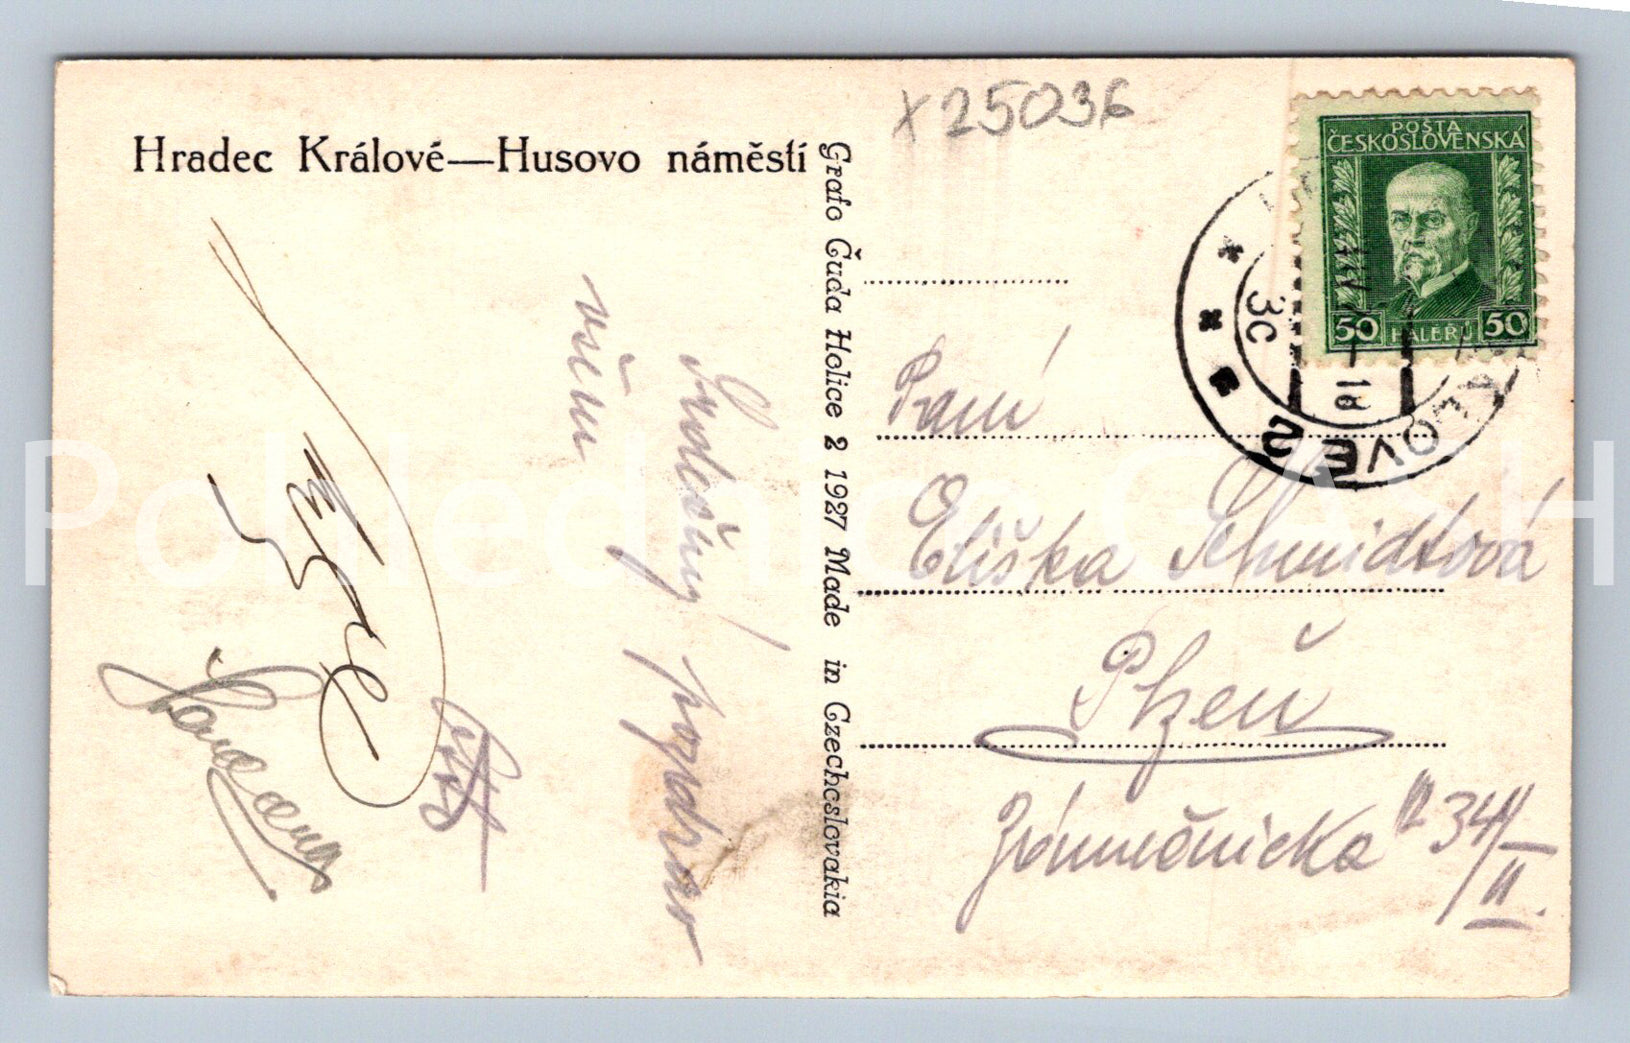 Hradec Králové—Husovo náměstí
x 25036
POŠTA
ČESKOSLOVENSKÁ
50 HALÉŘŮ 50
Grafo Čuda Holice 2 1927 Made in Czechoslovakia
Srdečný pozdrav
všem
Paní
Eliška Schmidtová
Plzeň
34
II.
ALOVÉ 2
Pohlednice CASH